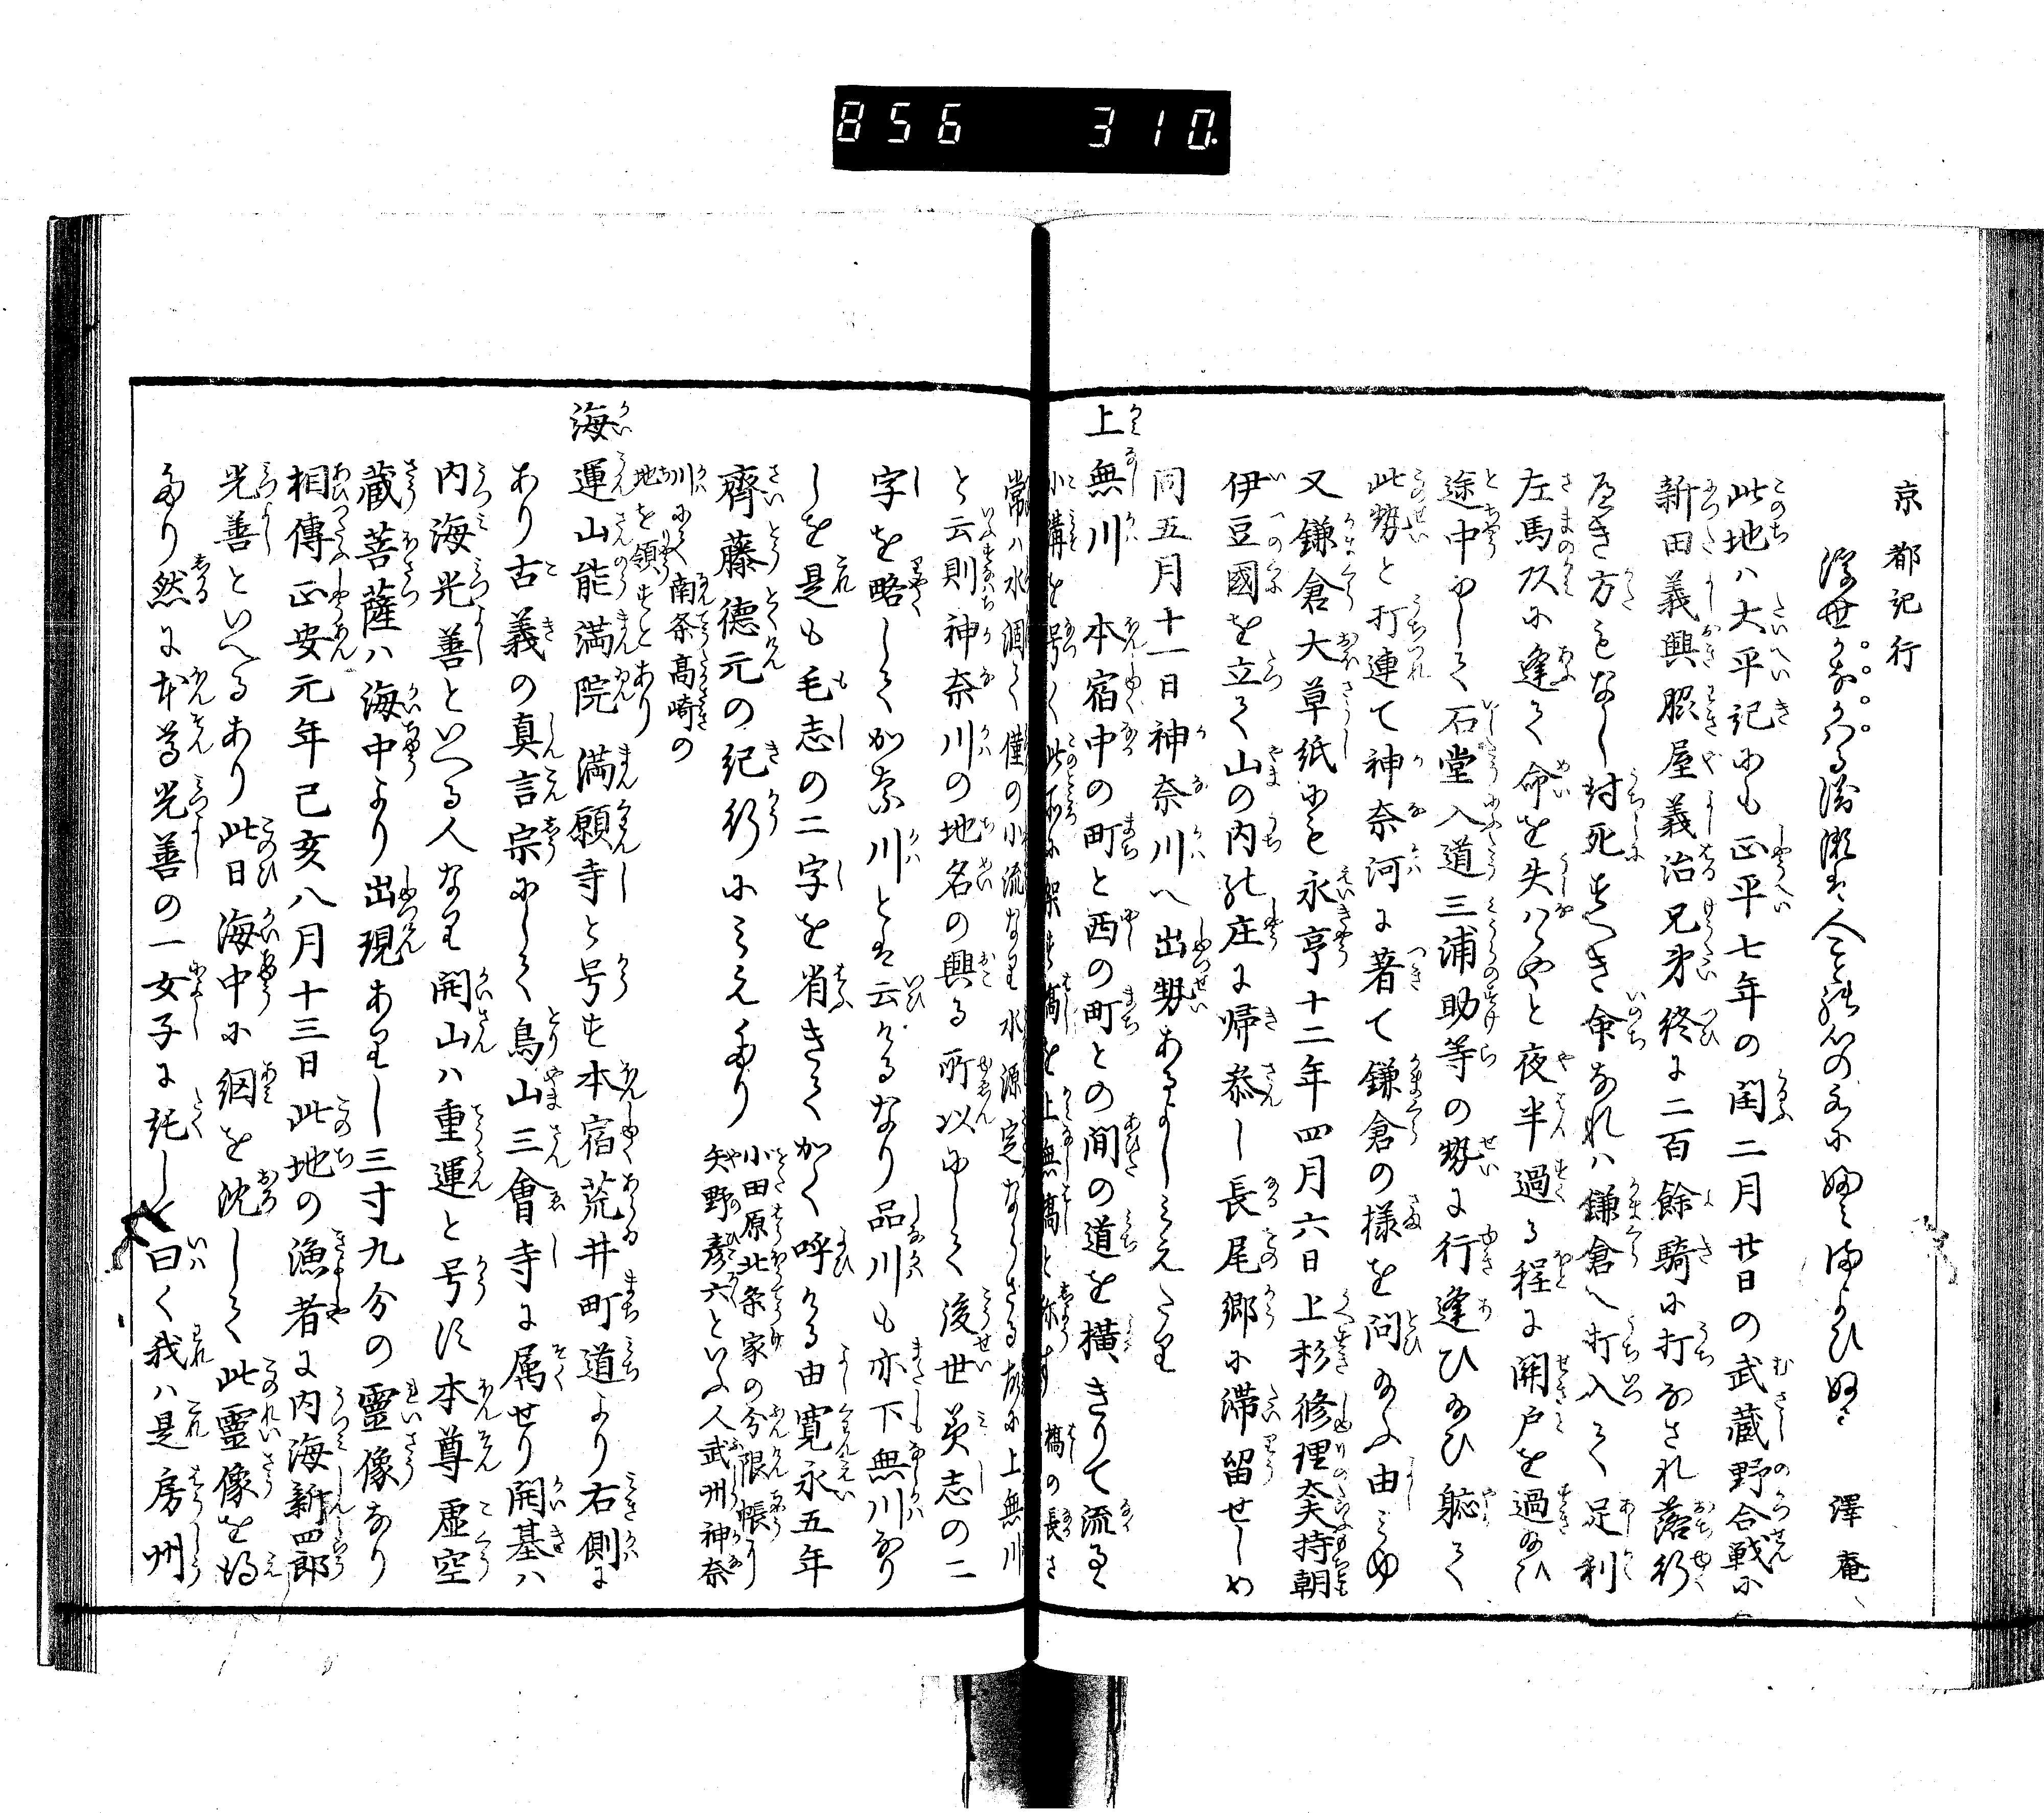 856 310
京都記行
浮世かなかゝる渡瀬は人ことの心の水にぬれまよひぬる 澤菴
此地ハ大平記にも正平七年の閏二月廿日の武蔵野合戦に
新田義興脇屋義治兄弟終に二百餘騎に打なされ落行
へき方もなし討死すへき命なれハ鎌倉へ打入て足利
左馬頭に逢て命を失ハはやと夜半過る程に関戸を過給ひ
途中にして石堂入道三浦助等の勢に行逢ひ給ひ躰て
此勢と打連て神奈河に着て鎌倉の様を問給ふ由みゆ
又鎌倉大草紙にも永亨十二年四月六日上杉修理大夫持朝
伊豆國を立て山の内の庄に帰参し長尾郷に滞留せしめ
同五月十一日神奈川へ出勢あるよしみえたり
上無川 本宿中の町と西の町との間の道を横きりて流るゝ
小溝を号く此所に架す橋を上無橋と称す橋の長さ
常ハ水涸て僅の小流なり水源定ならさる故に上無川
と云則神奈川の地名の興る所以にして後世美志の二
字を略してかな川とは云けるなり品川も亦下無川なり
しを是も毛志の二字を省きてかく呼ける由寛永五年
齊藤徳元の紀行にみえたり 小田原北条家の分限帳に
矢野彦六といふ人武州神奈
川にて南条高崎の
地を領すとあり
海運山能満院 満願寺と号す本宿荒井町道より右側に
あり古義の真言宗にして鳥山三會寺に属せり開基ハ
内海光善といへる人なり開山ハ重運と号に本尊虚空
蔵菩薩ハ海中より出現ありし三寸九分の靈像なり
相傳正安元年己亥八月十三日此地の漁者に内海新四郎
光善といへるあり此日海中に網を沈して此靈像を得
たり然に本尊光善の一女子に託して曰く我ハ是房州